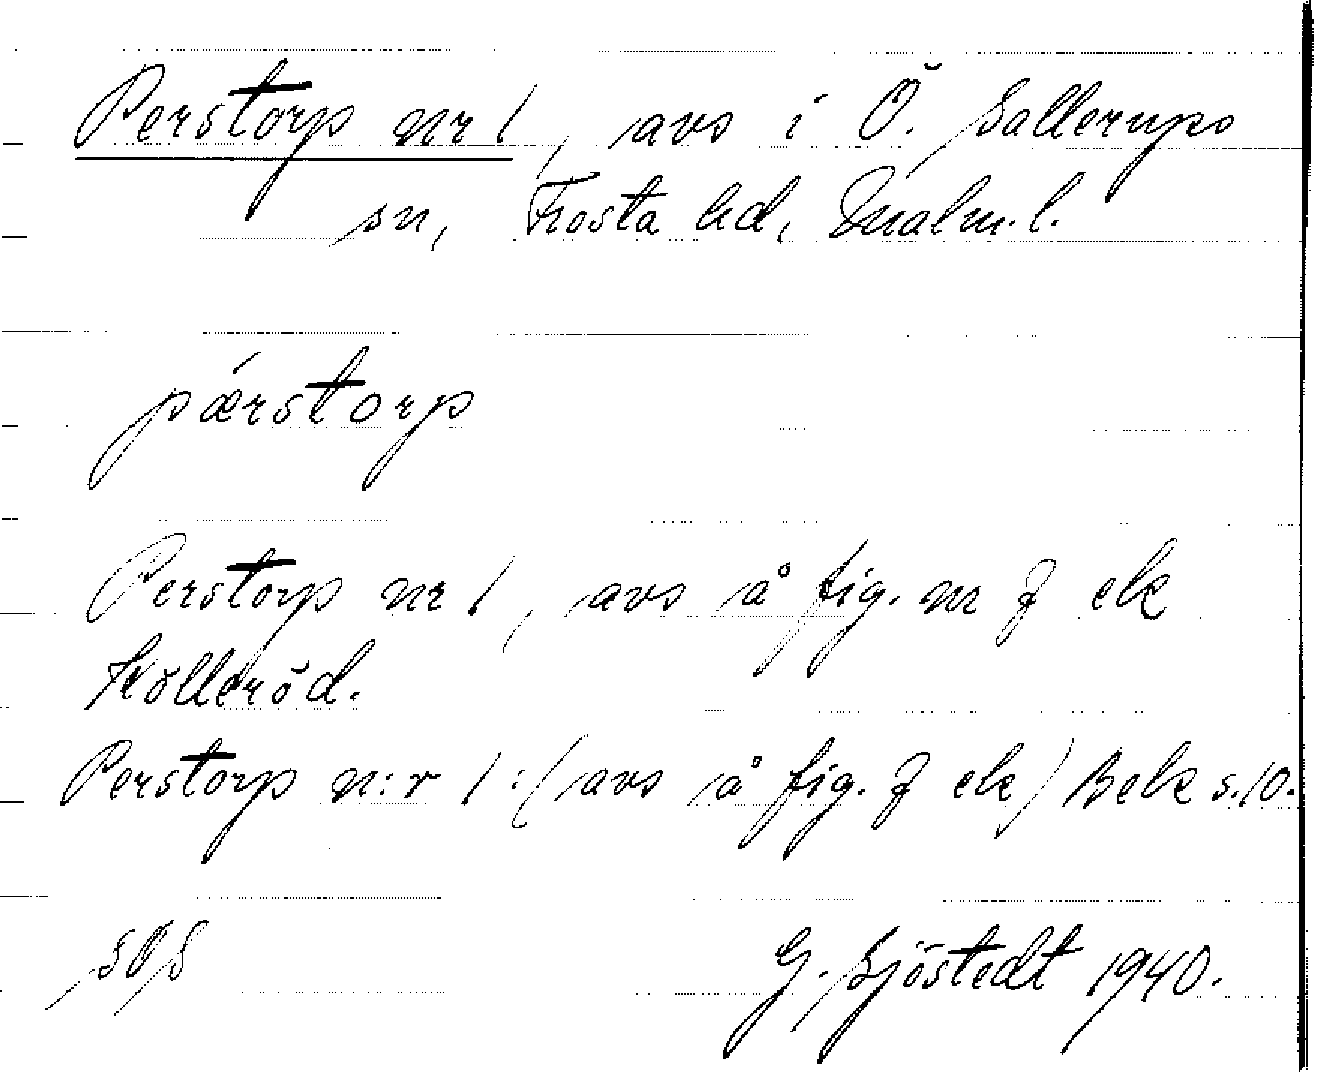 Perstorp nr 1, avs i Ö. Sallerups
sn, Frosta hd, Malm. l.
pǽrstorp
Perstorp nr 1, avs å fig. nr J ek
Kölleröd.
Perstorp n:r 1 :(avs å fig. J ek) Bek s. 10.
SOS
G. Sjöstedt 1940.